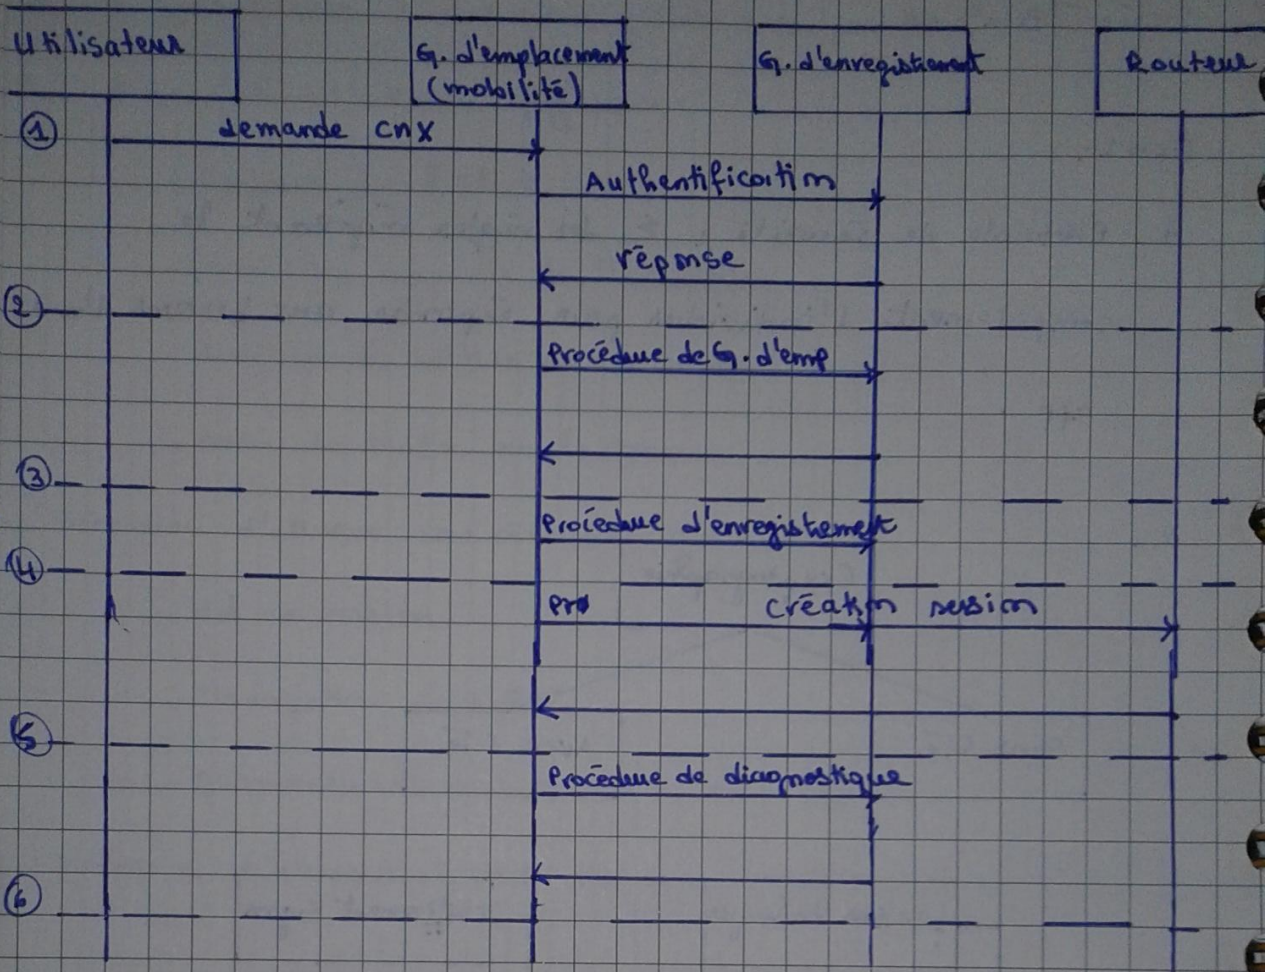 Utilisateur
G. d'emplacement
(mobilité)
G. d'enregistrement
Routeur
1
demande cnx
Authentification
réponse
2
Procédure de G. d'emp
3
Procédure d'enregistrement
4
pro création session
5
Procédure de diagnostique
6